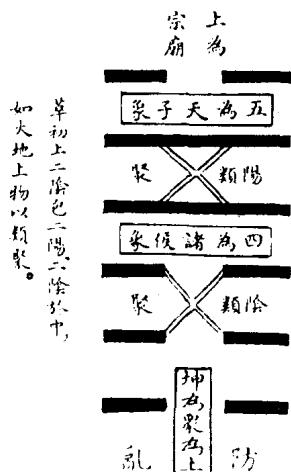 上為
宗廟
五為天子象
陽類聚
四為諸候象
陰類聚
坤為眾為上
防亂
草初上二陰包二陽二陰於中，
如火地上物以類聚。